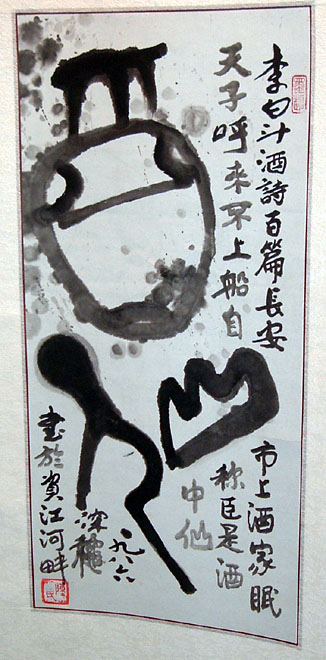 李白斗酒詩百篇長安
市上酒家眠
天子呼來不上船自
称臣是酒
中仙
一九八六
深穐
書於資江河畔